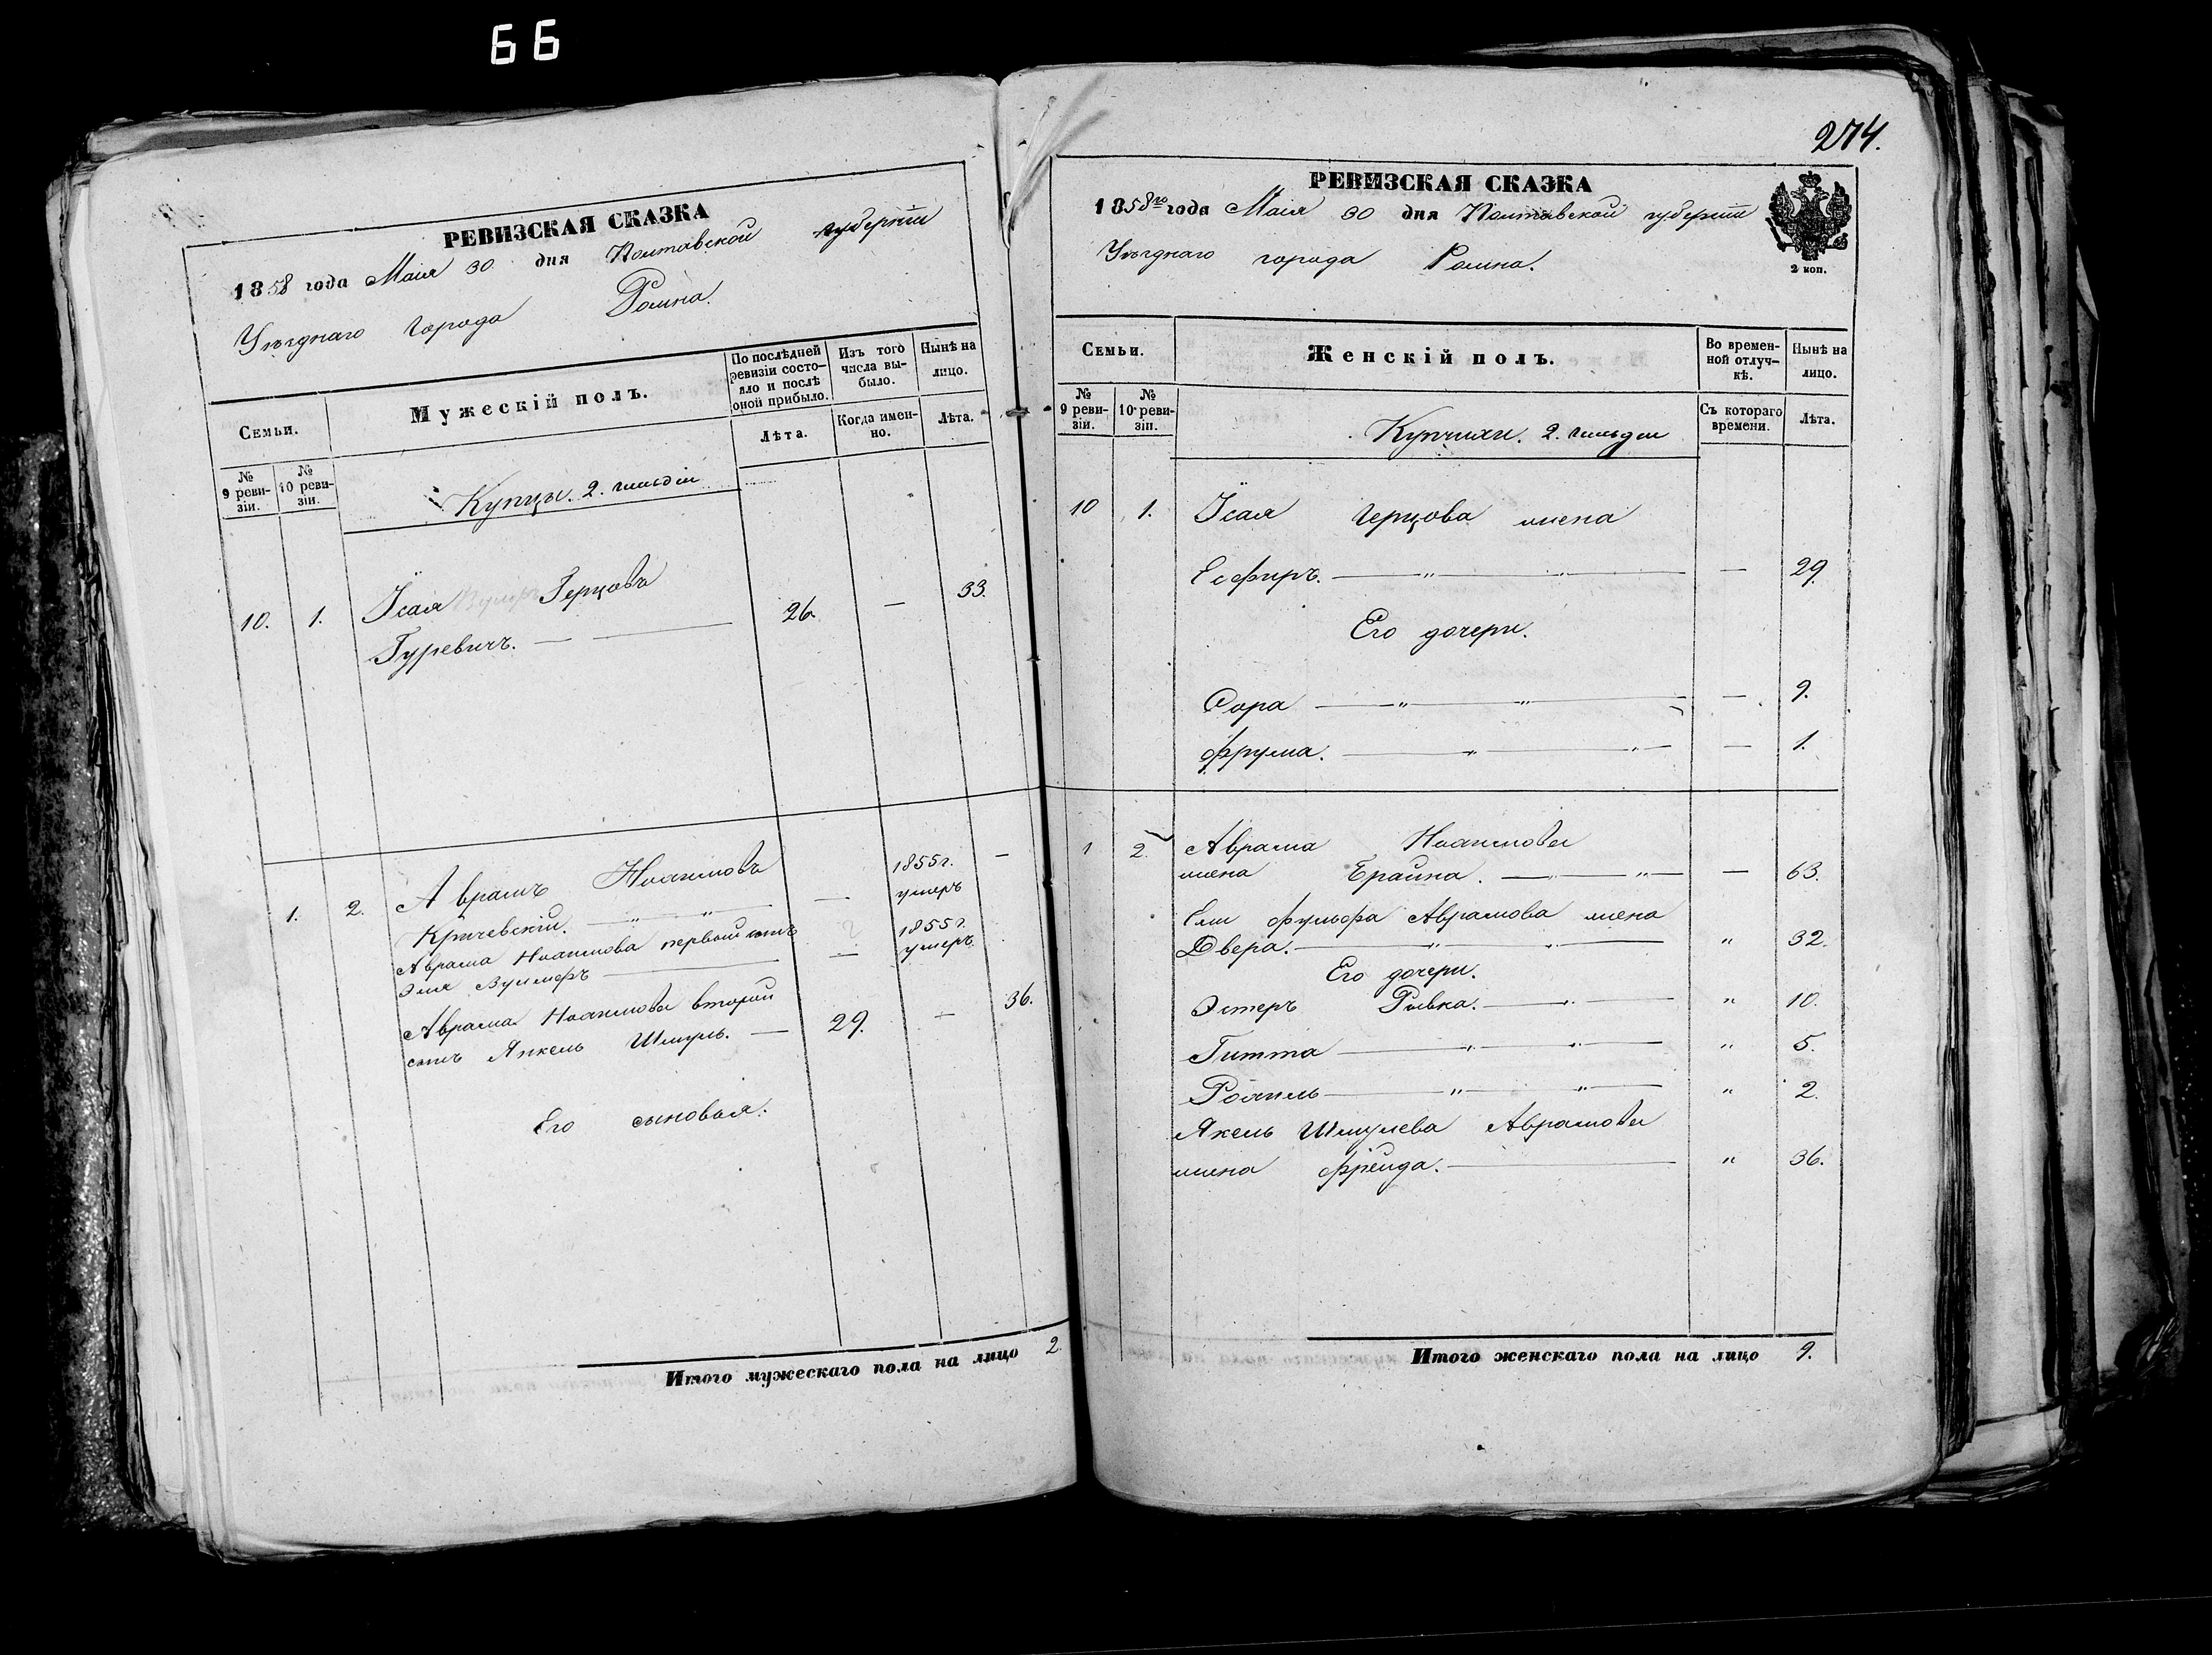 66
РЕВИЗСКАЯ СКАЗКА
1858 года Маія 30 дня Полтавской губерніи
Уѣзднаго города Ромна.
Семьи.
№ 9 ревизіи.
№ 10 ревизіи.
Мужескій полъ.
По послѣдней ревизіи состояло и послѣ оной прибыло.
Лѣта.
Изъ того числа выбыло.
Когда именно.
Нынѣ на лицо.
Лѣта.
Купцы. 2. гильдіи
10. 1. Ісая Герцовъ
Гуревичъ. — 26. — 33.
1. 2. Аврамъ 1855 г. —
Кричевскій. — умеръ
Аврама первый сынъ 1855 г.
Эля Вульфъ — умеръ
Аврама второй
сынъ Янкель Шмуль. — 29. — 36.
Его сыновья:
Итого мужескаго пола на лицо 2
274.
РЕВИЗСКАЯ СКАЗКА
1858го года Маія 30 дня Полтавской губерніи
Уѣзднаго города Ромна.
2 коп.
Семьи.
№ 9 ревизіи.
№ 10 ревизіи.
Женскій полъ.
Во временной отлучкѣ.
Съ котораго времени.
Нынѣ на лицо.
Лѣта.
Купчихи. 2. гильдіи
10 1. Ісая Герцова жена
Есфиръ. — " — " — — 29
Его дочери.
Сора — " — " — — 9.
Фрума. — " — " — — 1.
1 2. Аврама
жена — " — — 63.
Ели Фульфа Аврамова жена
Двера. — " — " — " 32.
Его дочери.
Эстеръ Ривка. — " — " 10.
Гитта — " — " — " 5.
— " — " — " 2.
Якель Шмулева Аврамова
жена Фрейда. — " 36.
Итого женскаго пола на лицо 9.